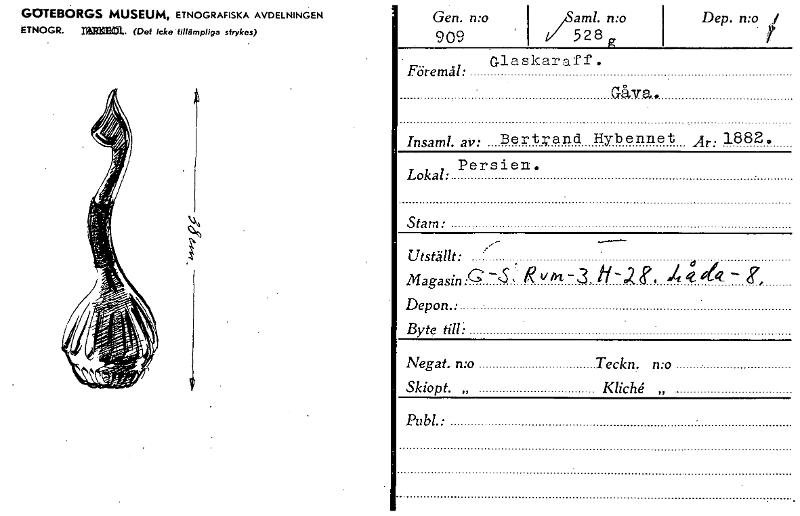 GÖTEBORGS MUSEUM, ETNOGRAFISKA AVDELNINGEN
ETNOGR. ARKEOL. (Det icke tillämpliga strykes)
38 cm.
Gen. n:o Saml. n:o Dep. n:o
909 528 g
Föremål: Glaskaraff.
Gåva.
Insaml. av: Bertrand Hybennet Ar: 1882.
Lokal: Persien.
Stam:
Utställt:
Magasin: G-S. Rum-3 H-28. Låda-8.
Depon.:
Byte till:
Negat. n:o Teckn. n:o
Skiopt. „ Kliché „
Publ.: